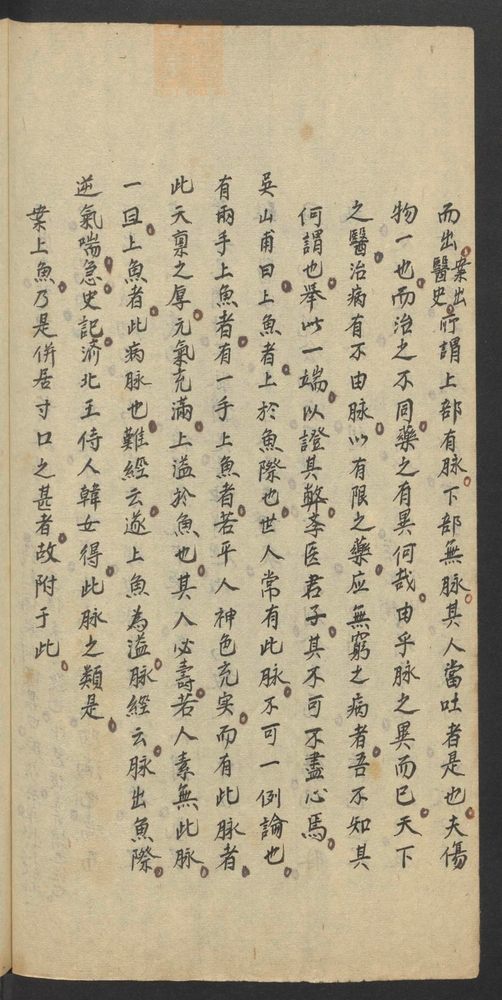 而出醫史案出所謂上部有脉下部無脉其人當吐者是也夫傷
物一也而治之不同藥之有異何哉由乎脉之異而已天下
之醫治病有不由脉以有限之藥应無窮之病者吾不知其
何謂也舉此一端以證其弊業医君子其不可不盡心焉
吳山甫曰上魚者上於魚際也世人常有此脉不可一例論也
有兩手上魚者有一手上魚者若平人神色充实而有此脉者
此天稟之厚元氣充滿上溢於魚也其人必壽若人素無此脉
一旦上魚者此病脉也難經云遂上魚為溢脉經云脉出魚際
逆氣喘急史記濟北王侍人韓女得此脉之類是
案上魚乃是併居寸口之甚者故附于此